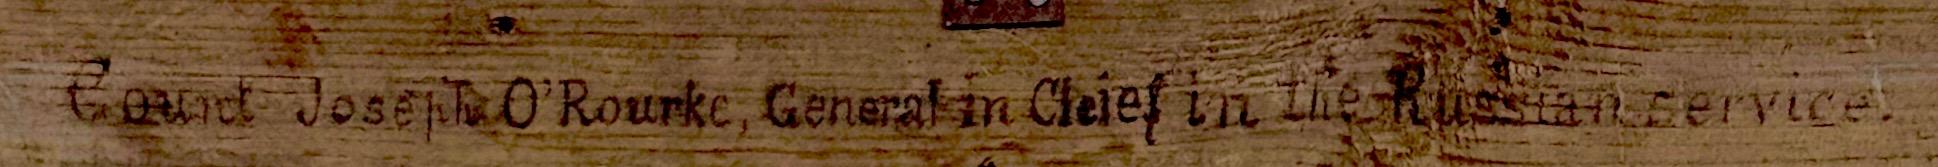 Count Joseph O'Rourke, General in Chief in the Russian service.